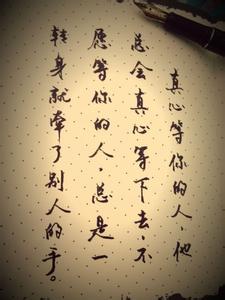 真心等你的人，他
总会真心等下去，不
愿等你的人，总是一
转身就牵了别人的手。